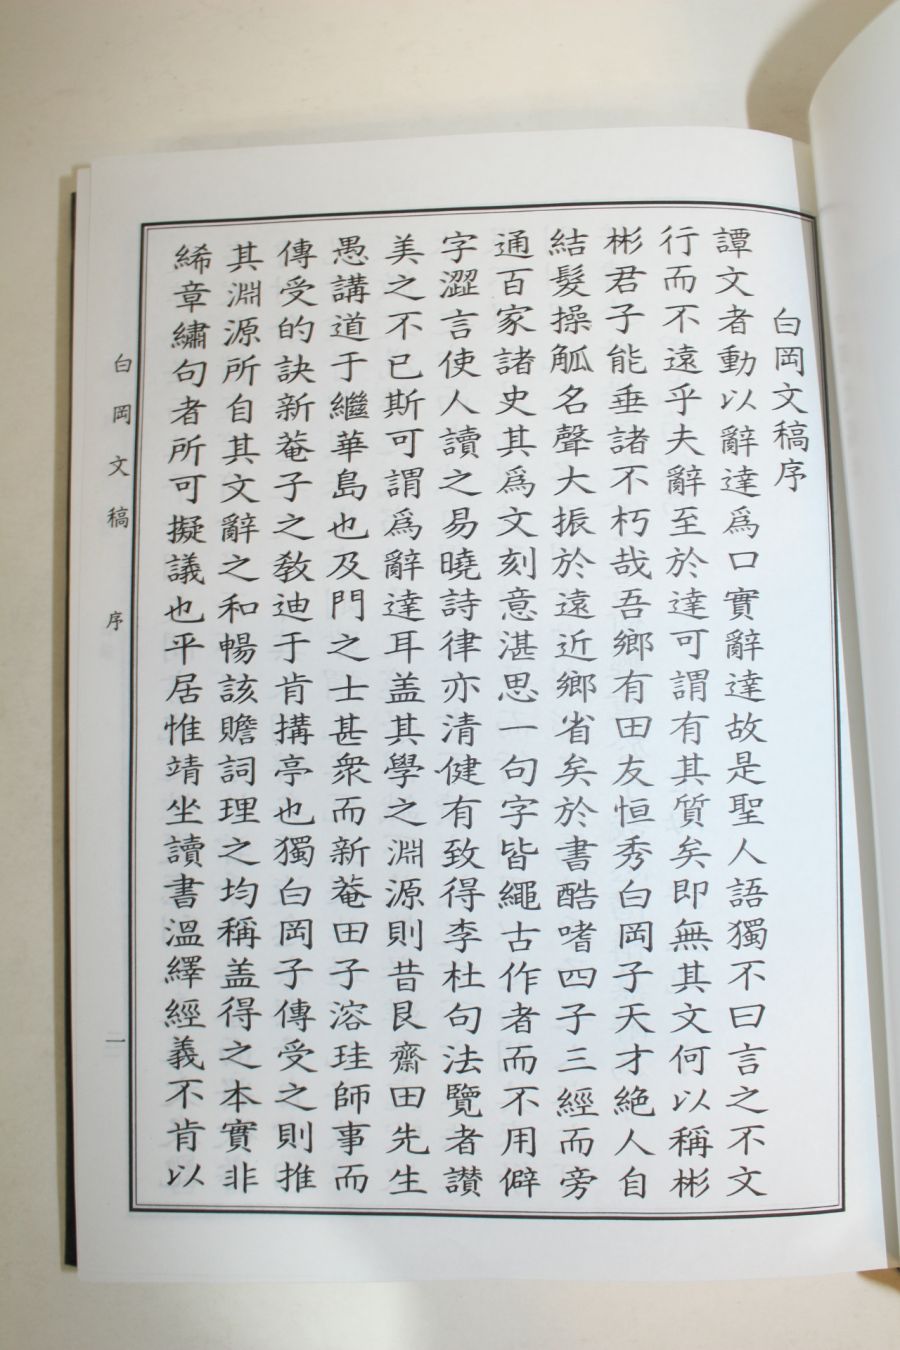 白岡文稿序
譚文者動以辭達爲口實辭達故是聖人語獨不曰言之不文
行而不遠乎夫辭至於達可謂有其質矣即無其文何以稱彬
彬君子能垂諸不朽哉吾鄉有田友恒秀白岡子天才絶人自
結髮操觚名聲大振於遠近鄉省矣於書酷嗜四子三經而旁
通百家諸史其爲文刻意湛思一句字皆繩古作者而不用僻
字澀言使人讀之易曉詩律亦清健有致得李杜句法覽者讃
美之不已斯可謂爲辭達耳盖其學之淵源則昔艮齋田先生
愚講道于繼華島也及門之士甚衆而新菴田子溶珪師事而
傳受的訣新菴子之敎迪于肯搆亭也獨白岡子傳受之則推
其淵源所自其文辭之和暢該贍詞理之均稱盖得之本實非
絺章繡句者所可擬議也平居惟靖坐讀書溫繹經義不肯以
白岡文稿 序 一